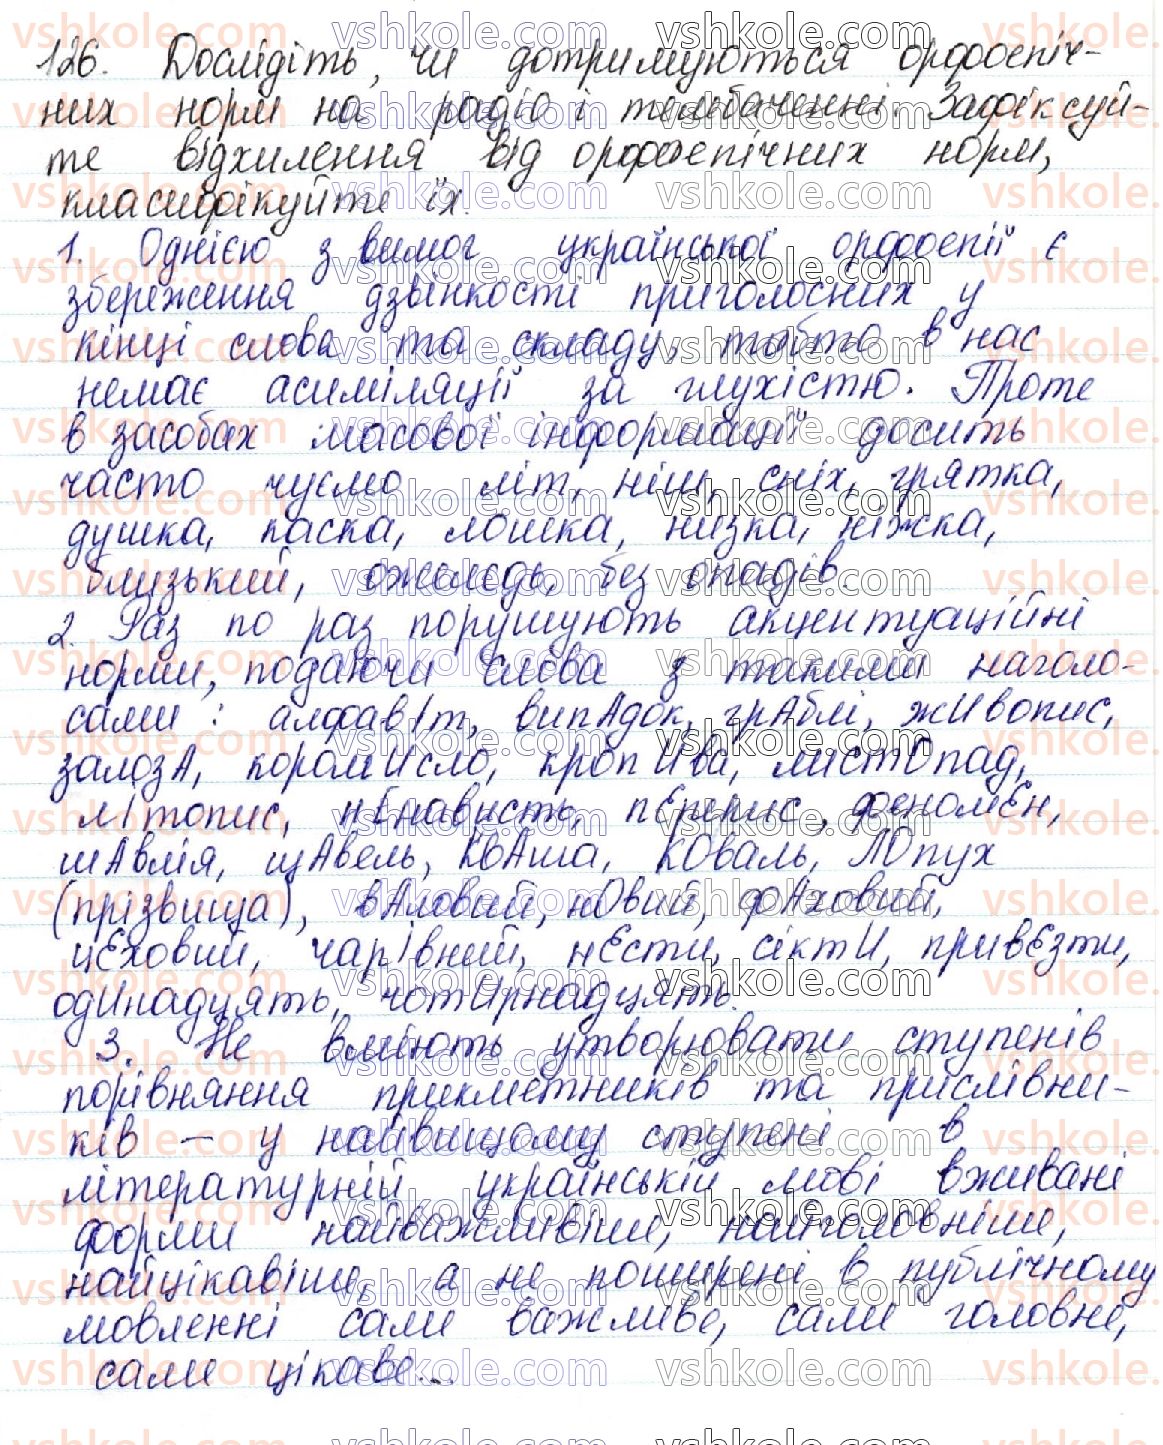 126. Дослідіть, чи дотримуються орфоепіч-
них норм на радіо і телебаченні. Зафіксуй-
те відхилення від орфоепічних норм,
класифікуйте їх.
1. Однією з вимог української орфоепії є
збереження дзвінкості приголосних у
кінці слова та складу, тобто в нас
немає асиміляції за глухістю. Проте
в засобах масової інформації досить
часто чуємо літ, ніш, сніх, грятка,
душка, каска, лошка, низка, ніжка,
близький, ожеледь, без опадів.
2. Раз по раз порушують акцентуаційні
норми, подаючи слова з такими наголо-
сами: алфавІт, випАдок, грАблі, жИвопис,
залозА, коромИсло, кропИва, листОпад,
лІтопис, нЕнависть, пЕрепис, феномЕн,
шАвлія, щАвель, КвАша, КОваль, ЛОпух
(прізвища), вАловий, нОвий, фАховий,
цЕховий, чарІвний, нЕсти, сіктИ, привЕзти,
одИнадцять, чотИрнадцять.
3. Не вміють утворювати ступенів
порівняння прикметників та прислівни-
ків – у найвищому ступені в
літературній українській мові вживані
форми найважливіше, найголовніше,
найцікавіше, а не поширені в публічному
мовленні саме важливе, саме головне,
саме цікаве...
vshkole.com